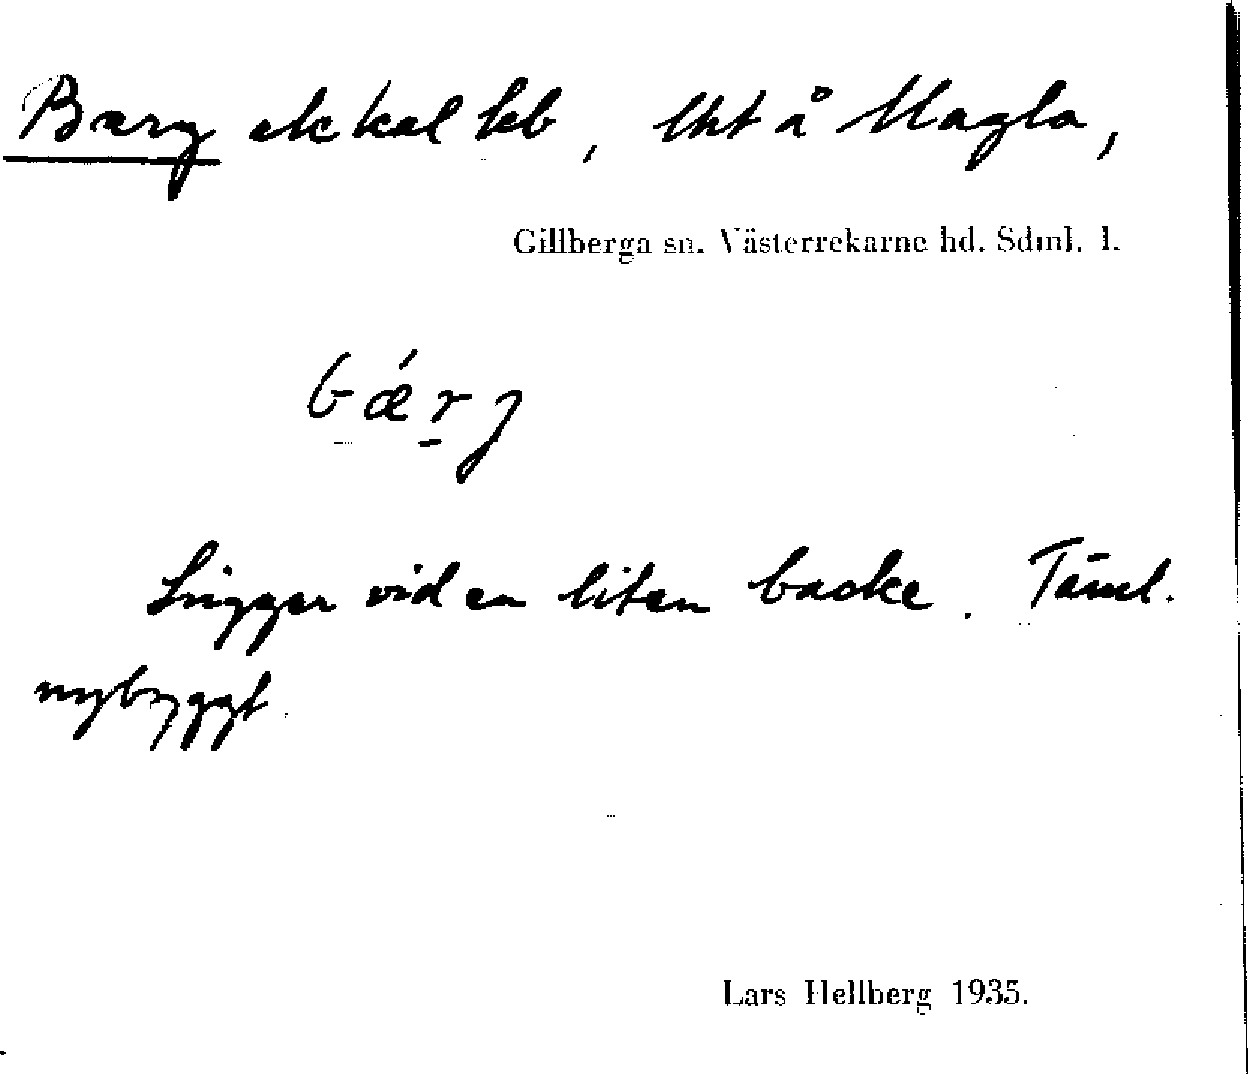 Berg ek kal lhb, lht å Hagla,
Gillberga sn. Västerrekarne hd. Sdml. l.
bǽrj
Ligger vid en liten backe. Täml.
nybyggt.
Lars Hellberg 1935.